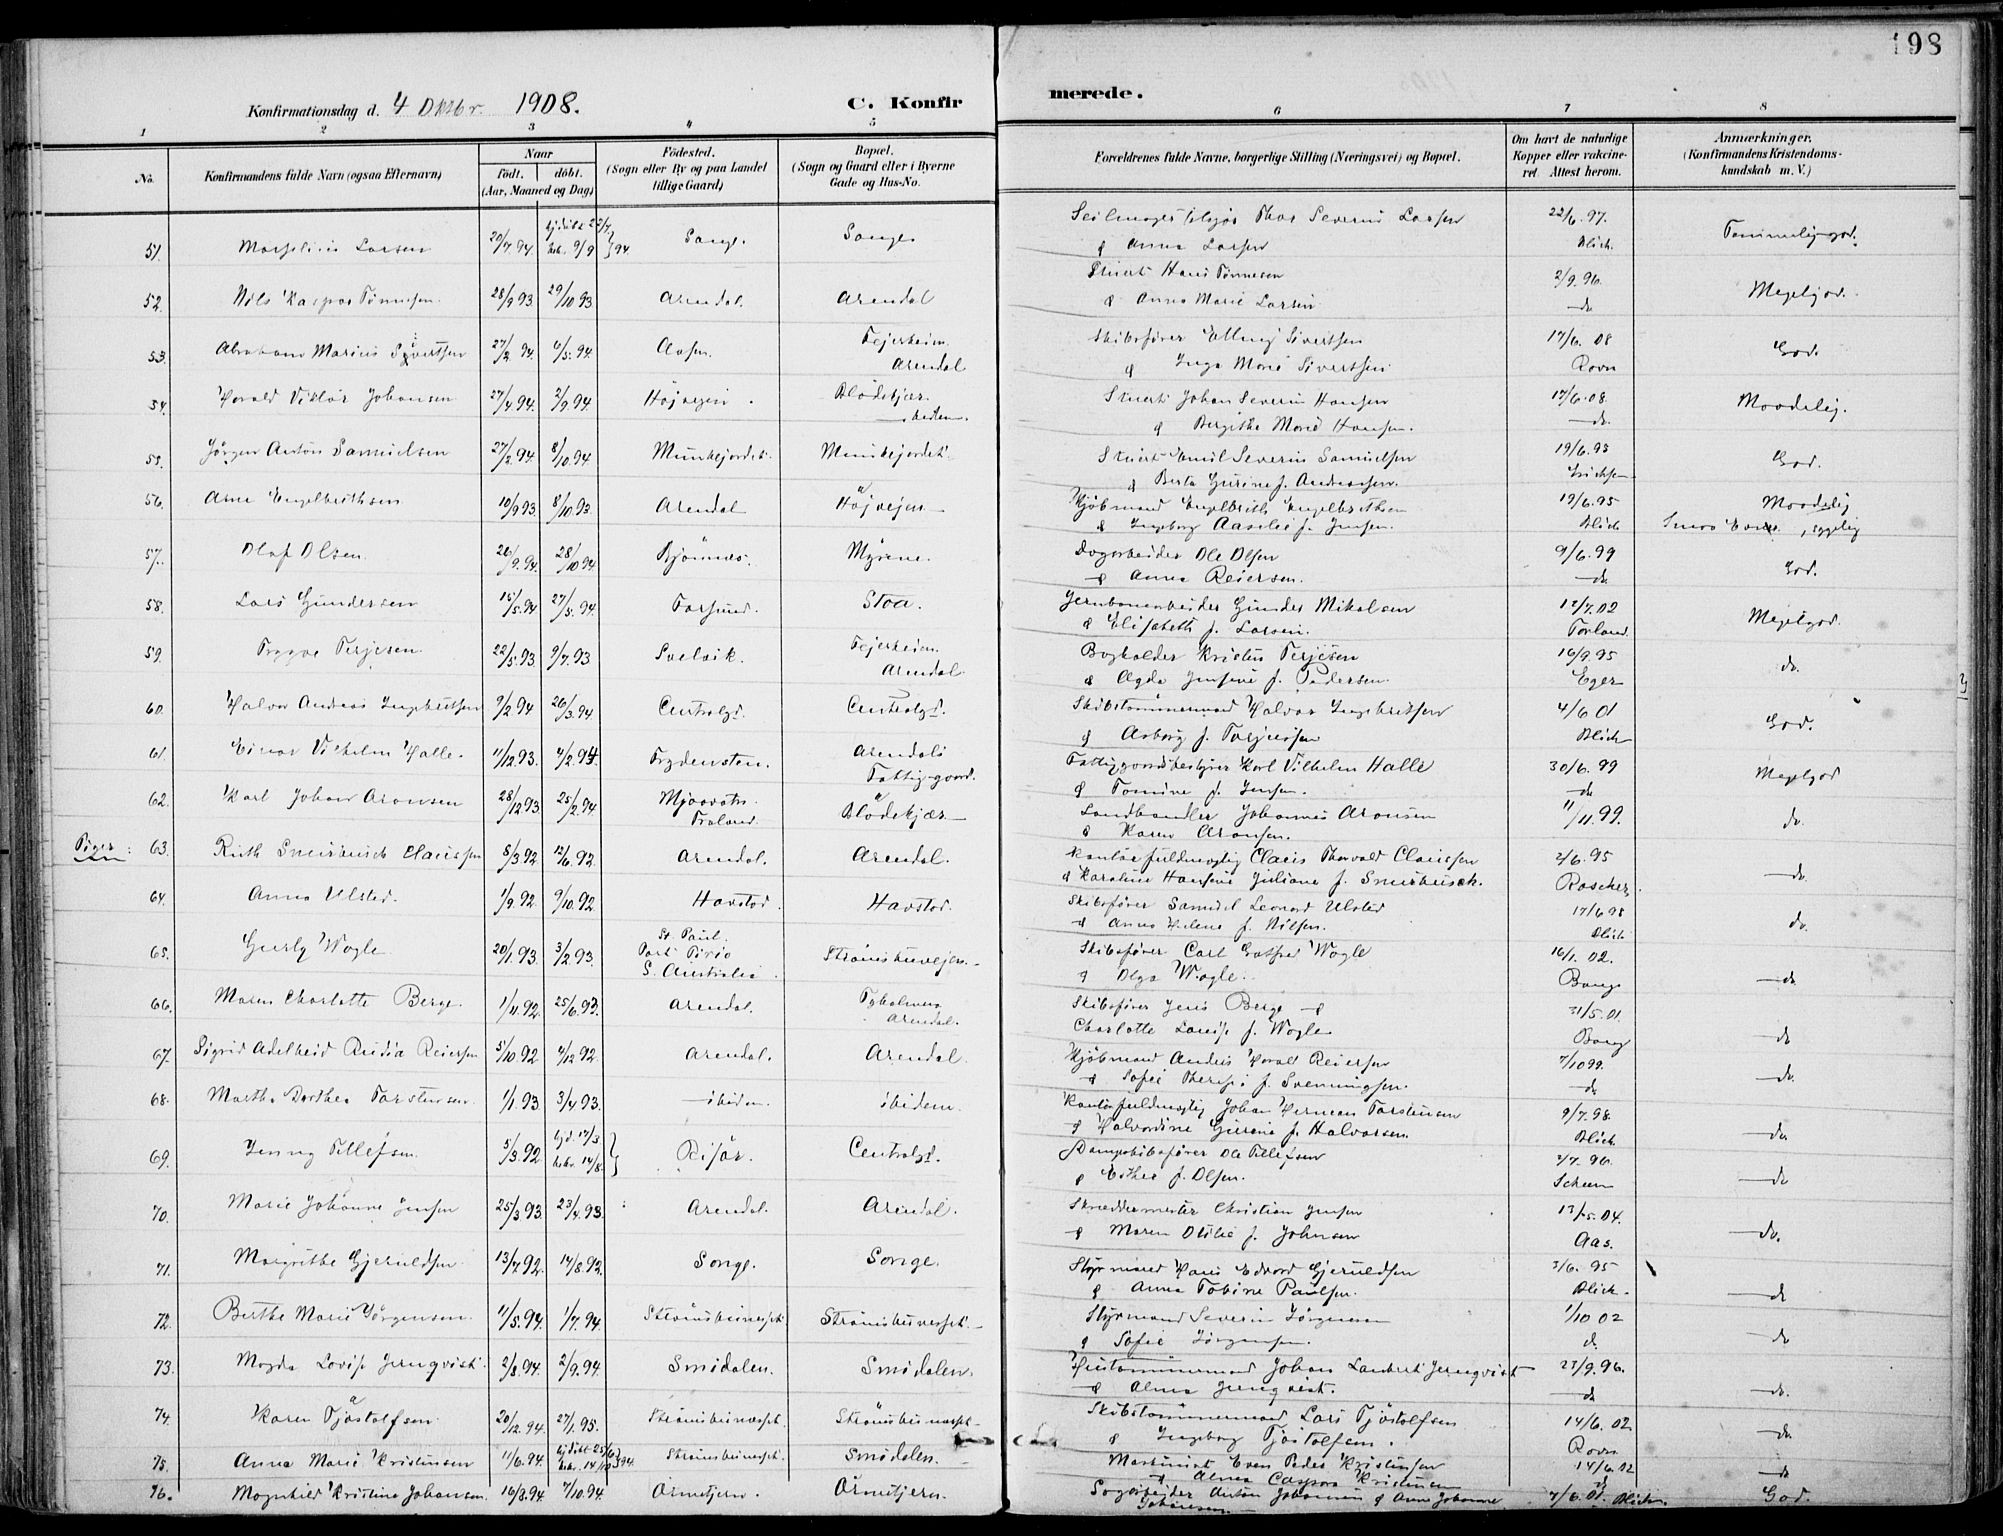 198
Konfirmationsdag d. 4 Oktbr. 1908.
C. Konfirmerede.
1 2 3 4 5 6 7 8
No.
Konfirmandens fulde Navn (ogsaa Efternavn)
Naar
Födt. döbt.
(Aar, Maaned og Dag)
Födested.
(Sogn eller By og paa Landet
tillige Gaard)
Bopæl.
(Sogn og Gaard eller i Byerne
Gade og Hus-No.
Forældrenes fulde Navne, borgerlige Stilling (Næringsvei) og Bopæl.
Om havt de naturlige
Kopper eller vakcine-
ret. Attest herom.
Anmærkninger.
(Konfirmandens Kristendoms-
kundskab m. V.)
51. Larsen 20/7 94. hjdöbt 22/7 bekr. 9/9 } 94. Songe. Songe
Thor Severin Larsen 22/6. 97.
& Anna Larsen Blich. Temmelig god.
52. Nils Kaspar Tönnesen 28/9 93 29/10 93 Arendal. Arendal
Stuert Hans Tönnesen 2/9. 96.
& Anna Marie Larsen do Megetgod.
53. Abraham Marius Sivertsen 27/2 94. 6/5. 94. Aasen. Fejerheien. Arendal
Skibsförer Elling Sivertsen 17/6. 08
& Inga Marie Sivertsen Ravn God.
54. Harald Viktor Johansen 27/4 94. 2/9. 94. Höjvejen. Blödekjær
Stuert Johan Severin Hansen 17/6. 08.
& Bergithe Marie Hansen. do. Maadelig.
55. Jörgen Anton Samuelsen 27/2 94. 8/10. 94. Munkejordet. Munkejordet.
Stuert Emil Severin Samuelsen 19/6. 95
& Berta Gurine f. Andreassen. Erichsen God.
56. Arne Engelbrethsen 10/9 93. 8/10. 93. Arendal Höjvejen
Kjöbmand Engelbreth Engelbrethsen 19/6. 95
& Ingeborg Aaselie f. Jensen. Blich Maadelig
, sygelig
57. Olaf Olsen. 26/9. 94. 28/10 94 Bjönnes. Myrene.
Dagarbeider Ole Olsen 9/6. 99
& Anna Reiersen. do God.
58. Lars Gundersen 15/5. 94 27/5. 94. Farsund. Stoa.
Jernbanearbeider Gunder Mikalsen 12/7. 02
& Elisabeth f. Larsen. Forland. Megetgod.
59. Trygve Terjesen 22/5. 93 9/7. 93 Svelvik. Fejerheien. Arendal.
Bogholder Kristen Terjesen 16/9. 95
& Agda Jensine f. Pedersen. Eger do.
60. Halvor Andreas Ingebretsen 9/2. 94 26/3. 94 Centralgd. Centralgd.
Skibstömmermand Halvor Ingebretsen 4/6 01
& Asborg f. Terjessen Blich God.
61. Einar Vilhelm Halle. 11/12 93. 4/2. 94. Frydensten. Arendals Fattiggaard.
Fattiggaardsbestyrer Karl Vilhelm Halle 30/6. 99
& Tomine f. Jensen. do Megetgod
62. Karl Johan Aronsen 28/12 93 25/2. 94. Mjaavatn. Froland. Blödekjær
Landhandler Johannes Aronsen 11/11. 99.
& Karen Aronsen. do.
Piger:
63. Ruth Smerbusch Claussen 8/3 92 12/6. 92. Arendal. Arendal.
Kontorfuldmægtig Claus Thorvald Claussen 2/6. 95
& Karoline Hansine Juliane f. Smerbusch. Roscher. do.
64. Anna Ulstad. 1/9. 92. 9/10. 92. Havstad. Havstad.
Skibsförer Samuel Leonard Ulstad 17/6 98
& Anna Helene f. Nilsen. Blich do.
65. Gurly Wogle 20/1. 93. 3/2. 93. St. Paul. Port Pirio S. Australia. Strömsbuvejen.
Skibsförer Carl Gotfred Wogle 16/1. 02.
& Olga Wogle. Bang do
66. Maren Charlotte Berge 1/11. 92. 25/6. 93. Arendal. Tyholmen Arendal.
Skibsförer Jens Berge & 31/5. 01.
Charlotte Louise f. Wogle Bang do
67. Sigrid Adelheid Rudia Reiersen 5/10 92 4/12 92. Arendal. Arendal.
Kjöbmand Anders Harald Reiersen 7/10 99.
& Sofie Therese f. Svenningsen. do do.
68. Martha Dorthea Torstensen 1/1. 93. 3/4 93. ibidem. ibidem.
Kontorfuldmægtig Johan Herman Torstensen 9/7. 98.
& Halvordine Gurine f. Halvorsen. Blich do
69. Jenny Tellefsen. 5/3. 92 hjd. 17/3 bekr. 14/8. } Risör. Centralgd.
Dampskibsförer Ole Tellefsen 2/7. 96.
& Esther f. Olsen. Scheen do
70. Marie Johanne Jensen 25/3 93. 23/4. 93. Arendal. Arendal.
Skræddermester Christian Jensen 13/5. 04.
& Maren Otilie f. Johnsen Aas. do.
71. Margrethe Gjeruldsen. 13/7. 92. 14/8. 92. Songe. Songe.
Styrmand Hans Edvard Gjeruldsen 3/6. 95
& Anna Tobine Paulsen. Blich. do
72. Berthe Marie Jörgensen. 11/5. 94. 1/7. 94. Strömsbunesset. Strömsbunesset.
Styrmand Severin Jörgensen 1/10 02
& Sofie Jörgensen. do do
73. Magda Lovise Jernqvist. 2/8. 94. 2/9. 94. Smidalen. Smidalen.
Hustömmermand Johan Lambert Jernqvist 27/9. 96.
& Alma Jernqvist. do do.
74. Karen Tjöstolfsen 20/12. 94. 27/1. 95. Strömsbunesset. Strömsbunesset
Skibstömmermand Lars Tjöstolfsen 14/6. 02
& Ingeborg Tjöstolfsen. Ravn do
75. Anna Marie Kristensen 11/6. 94. hjdöbt 25/6 bekr. 14/10 } 94. Strömsbunesset. Smidalen.
Maskinist Even Peder Kristensen 14/6. 02
& Alma Caspara Kristensen do do
76. Magnhild Kristine Johansen. 16/8. 94. 7/10. 94. Örnetjern. Örnetjern.
Sagarbeider Anton Johansen & Anne Johanne 7/6. 01. Blich.
Johansen. God.